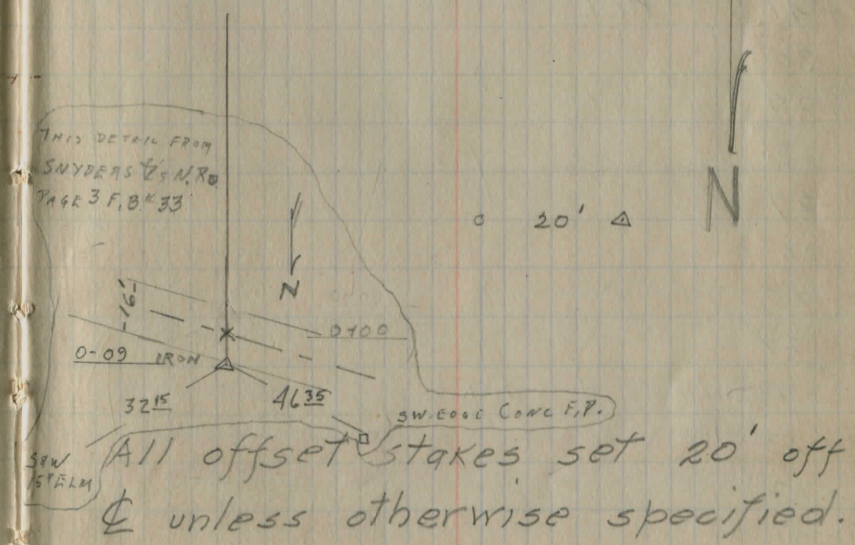 THIS DETAIL FROM
SNYDERS N. RD.
PAGE 3 F.B.# 33
20'
N
N
16'
0+00
0-09 IRON
32 15
46 35
SW. EDGE CONC F.P.
15" ELM
All offset stakes set 20' off
℄ unless otherwise specified.